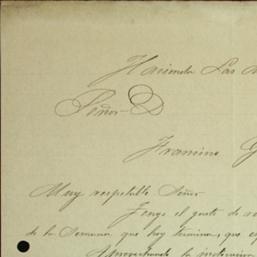 Hacienda Las
Señor D
Francisco
Muy respetable Señor
Tengo el gusto de
de la Semana que hoy termina, que
Aprovechando la